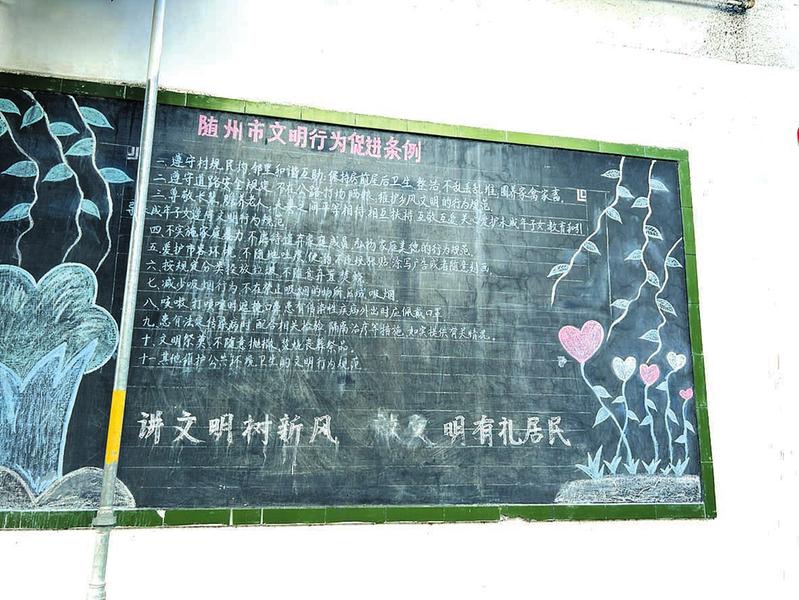 随州市文明行为促进条例
一.遵守村规民约.邻里和谐互助.保持房前屋后卫生.整洁.不乱丢乱堆.圈养家禽家畜.
二.遵守道路安全规定.不在公路打场晒粮.维护乡风文明的行为规范.
三.尊敬长辈.赡养老人.夫妻之间平等相待.相互扶持.互敬互爱.关心爱护未成年子女.教育和引
成年子女遵守文明行为规范.
四.不实施家庭暴力.不虐待遗弃家庭成员.弘扬家庭美德的行为规范.
五.爱护市容环境.不随地吐痰.便溺.不违规张贴.涂写广告或者随意刻画.
六.按规定分类投放垃圾.不随意弃置焚烧.
七.减少吸烟行为.不在禁止吸烟的场所区域吸烟
八.咳嗽.打喷嚏时遮掩口鼻.患有传染性疾病外出时应佩戴口罩
九.患有法定传染病时.配合相关检验.隔离治疗等措施.如实提供有关情况.
十.文明祭奠.不随意抛撒.焚烧丧葬祭品.
十一.其他维护公共环境卫生的文明行为规范
讲文明树新风 做文明有礼居民